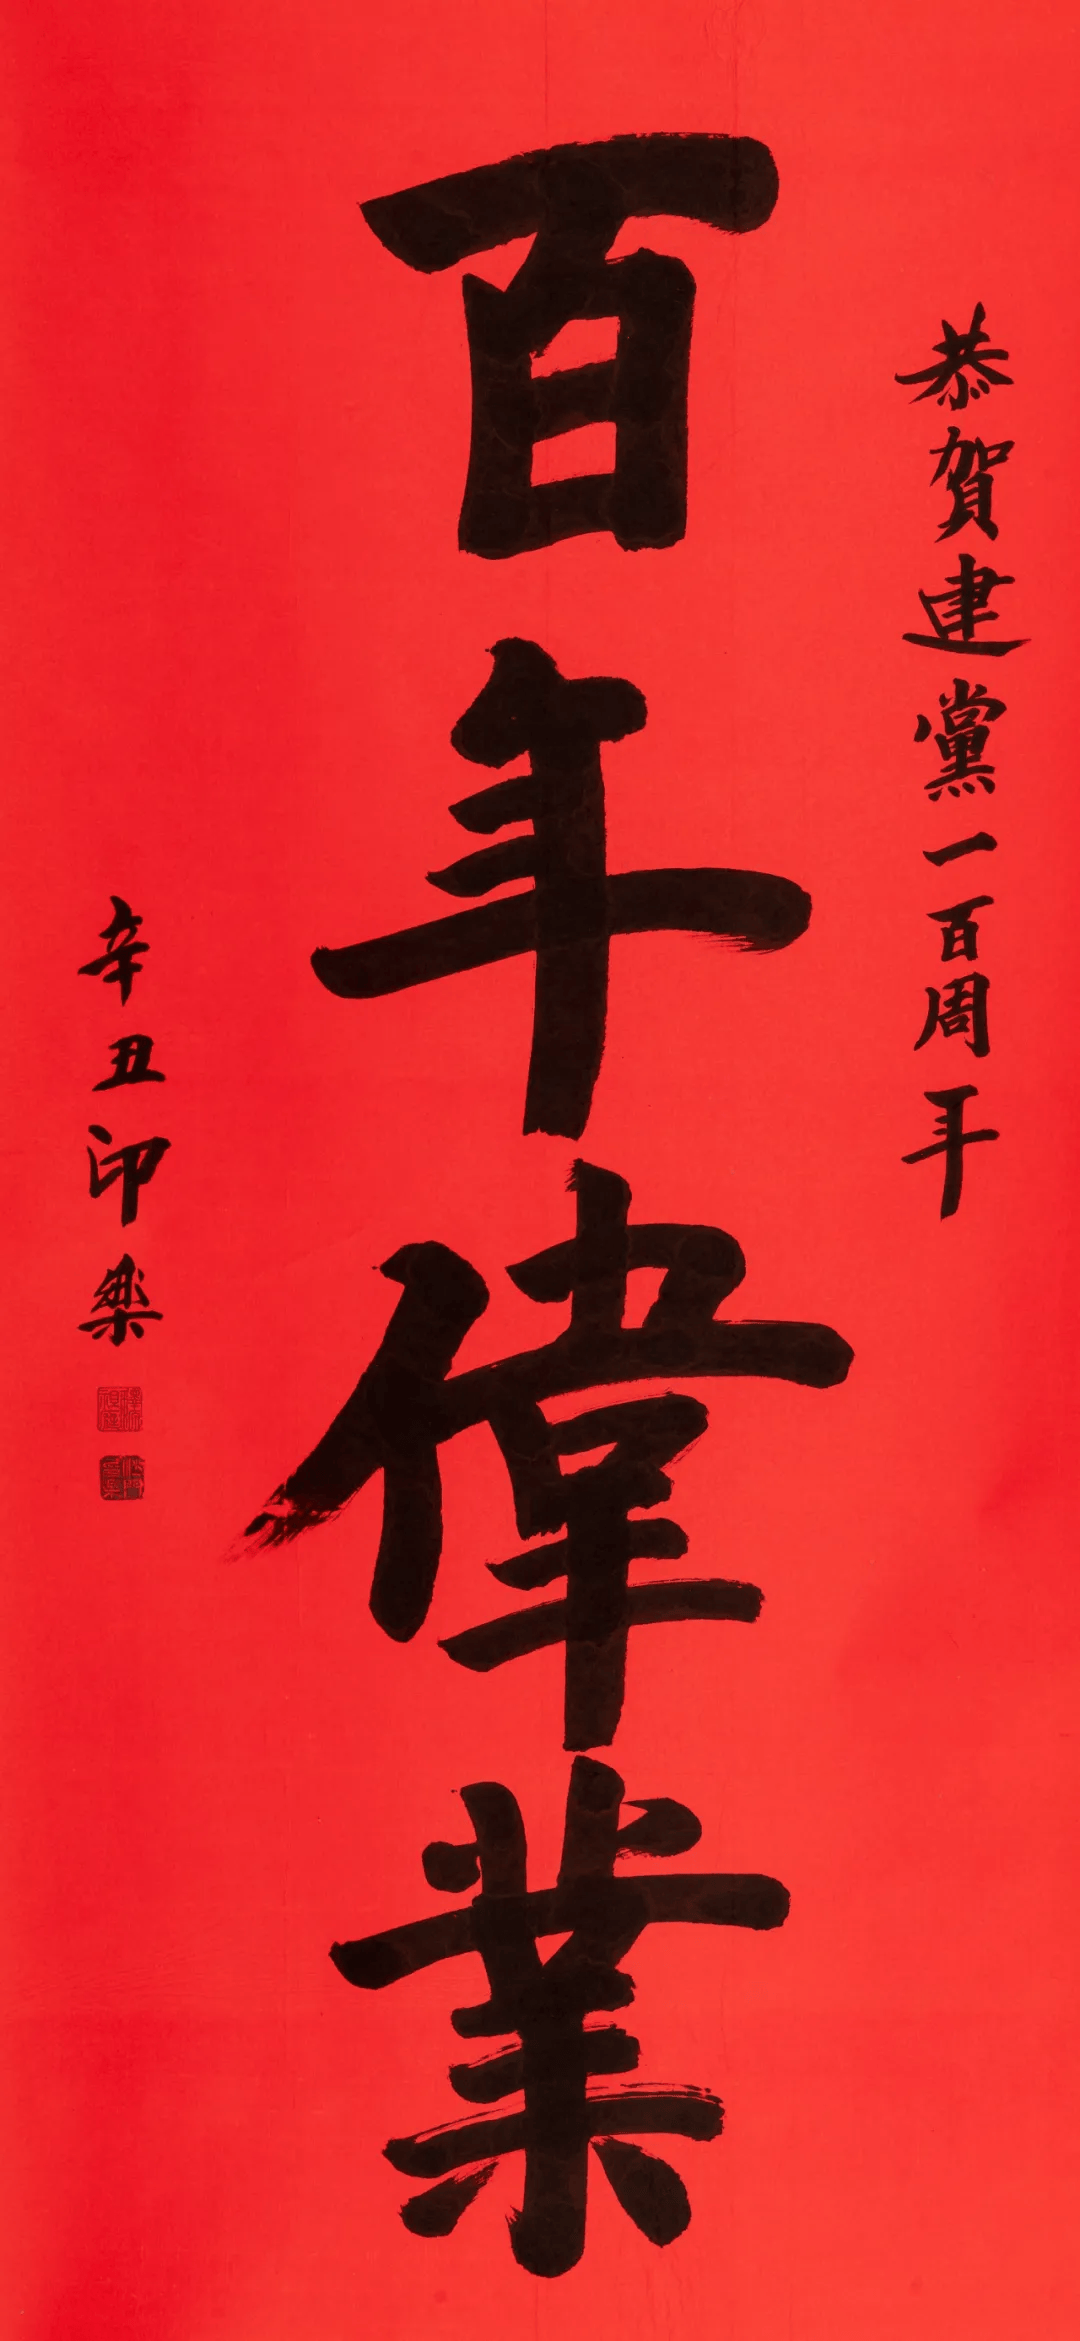 恭賀建黨一百周年
百年偉業
辛丑印樂